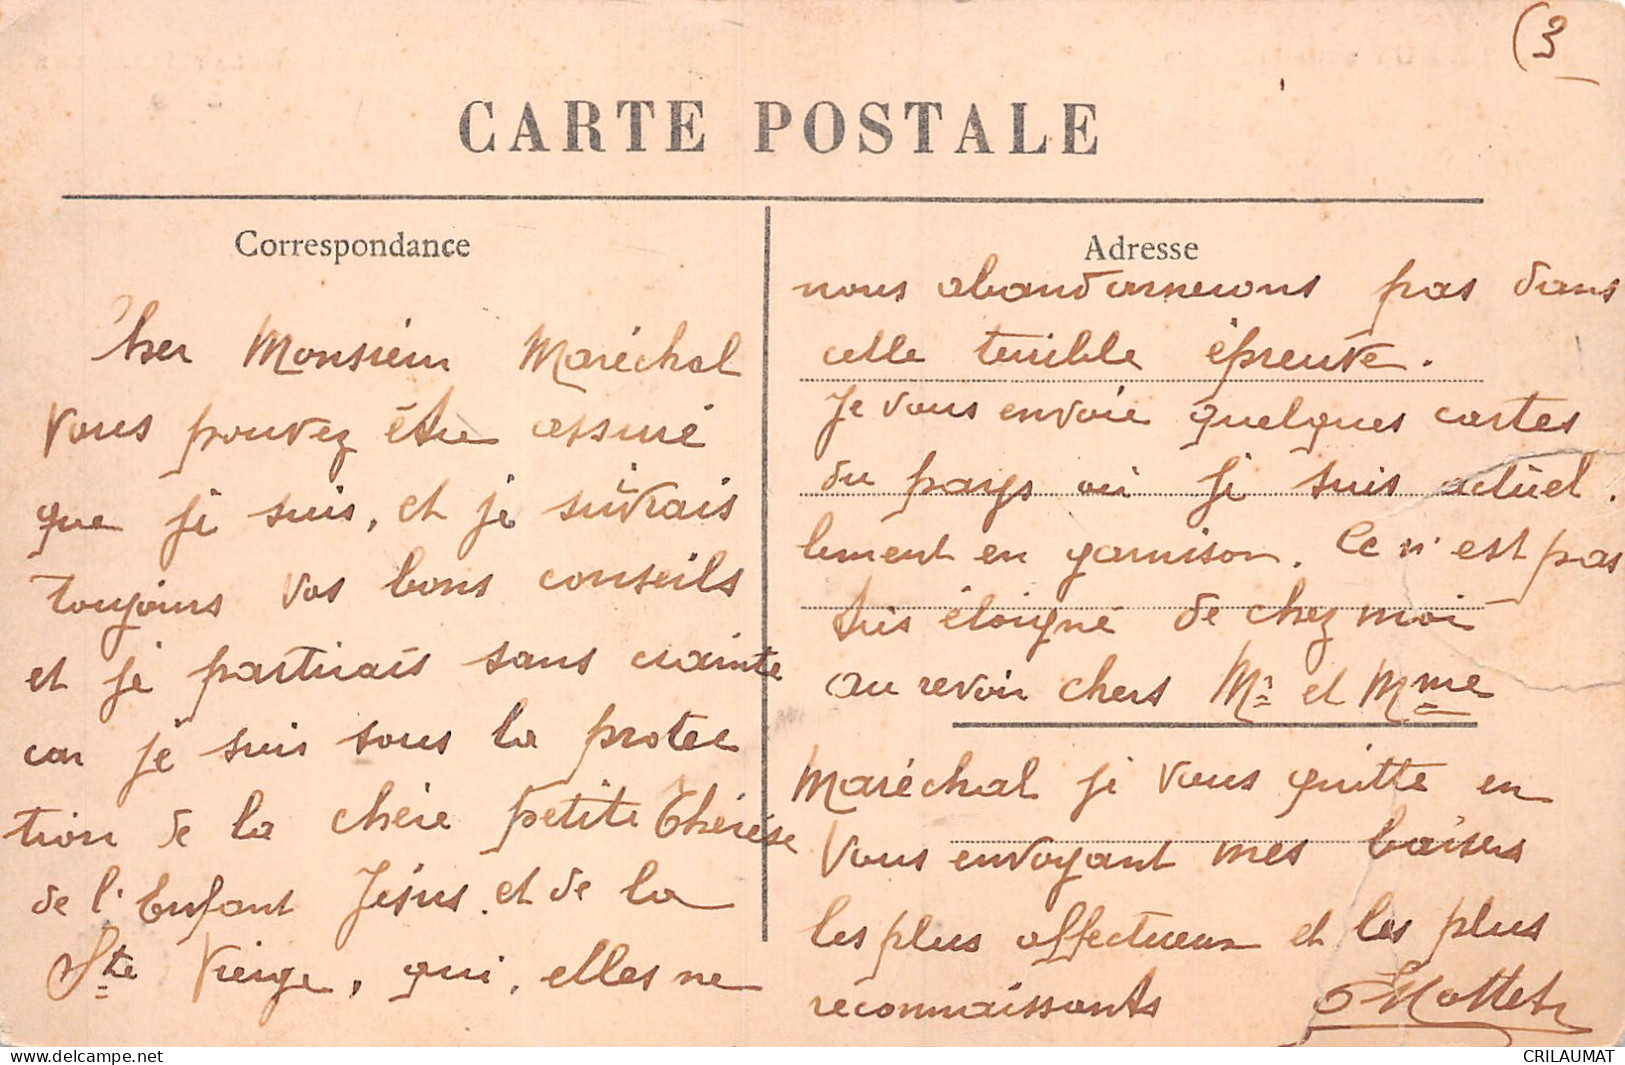 (3
CARTE POSTALE
Correspondance
Cher Monsieur Maréchal
Vous pouvez être assuré
que je suis, et je suivrais
toujours vos bons conseils
et je partirais sans crainte
car je suis sous la protec
tion de la chère petite Thérèse
de l'Enfant Jésus, et de la
Ste Vierge, qui, elles ne
Adresse
nous abandonnerons pas dans
cette terrible épreuve.
Je vous envoie quelques cartes
du pays où je suis actuel.
lement en garnison. Ce n'est pas
très éloigné de chez moi
au revoir chers Mr et Mme
Maréchal je vous quitte en
Vous envoyant mes baisers
les plus affectueux et les plus
reconnaissants Mottet
CRILAUMAT